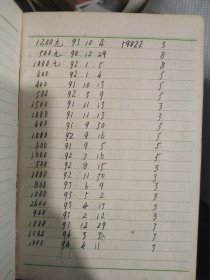 1200元 93 10 4 59022 3
500元 90 12 29 8
1000元 92 1 5 8
600 92 1 4 5
400 91 10 13 5
500 92 3 9 5
1500 91 11 13 3
1000 91 11 13 3
400 91 9 30 5
1000 92 9 16 5
600 91 9 5 5
1600 92 7 16 5
500 92 8 15 3
1000 92 11 30 3
800 93 6 9 3
1000 93 5 2 3
2600 93 4 13 3
900 93 2 12 3
1000 91 12 29 3
1000 94 3 2 3
1000 94 4 11 3